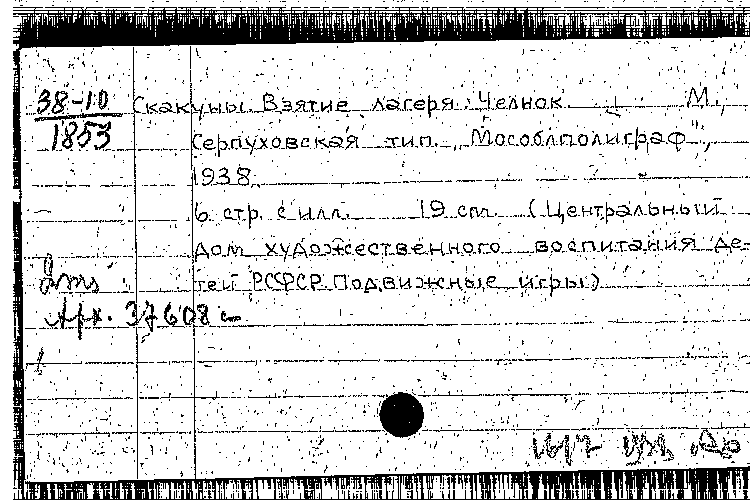 38-10
1853
Скакуны. Взятие лагеря. Челнок. М.,
Серпуховская тип. "Мособлполиграф",
1938.
6 стр. с илл. 19 cm. (Центральный
дом художественного воспитания де-
тей РСФСР. Подвижные игры)
Арх. 37608